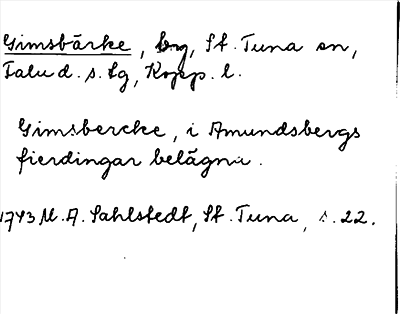 Gimsbärke, by, St. Tuna sn,
Falu d. s. lg, Kopp. l.
Gimsbercke, i Amundsbergs
fierdingar belägna.
1743 M. A. Sahlstedt, St. Tuna, s. 22.